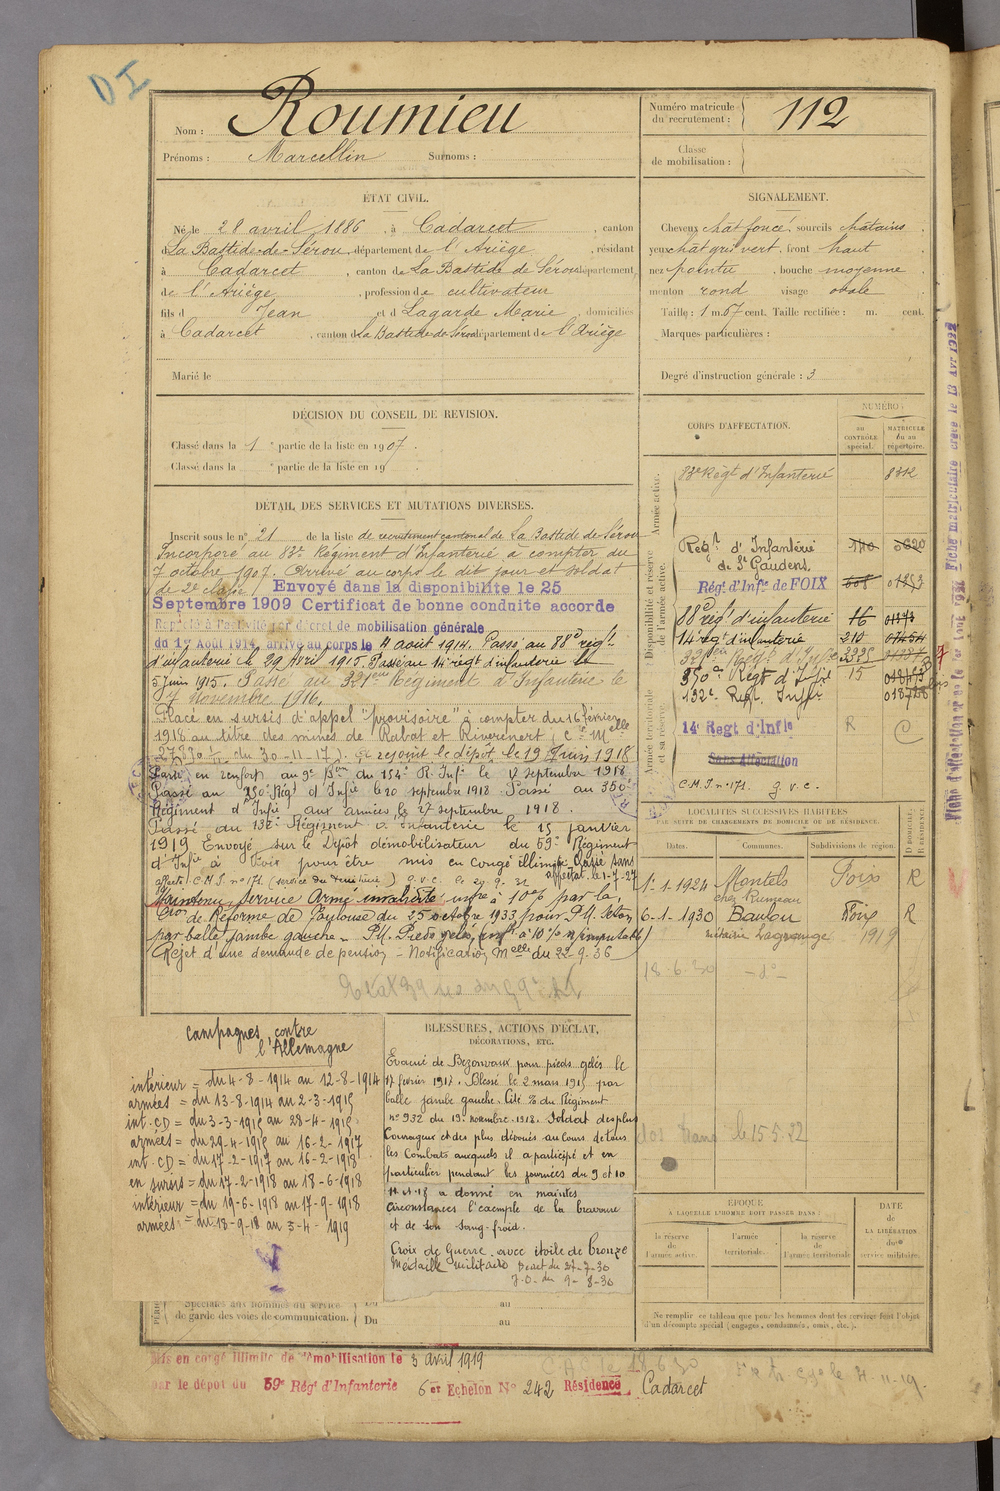 DI
Nom : Roumieu
Prénoms : Marcellin Surnoms :
Numéro matricule du recrutement : 112
Classe de mobilisation :
ÉTAT CIVIL.
Né le 28 avril 1886, à Cadarcet, canton
d La Bastide-de-Sérou, département de l'Ariège, résidant
à Cadarcet, canton de La Bastide de Sérou département
de l'Ariège, profession de cultivateur
fils d Jean et d Lagarde Marie domiciliés
à Cadarcet, canton d La Bastide de Sérou département de l'Ariège
Marié le
SIGNALEMENT.
Cheveux chât foncé, sourcils châtains
yeux chât gris vert, front haut
nez pointu, bouche moyenne
menton rond visage ovale
Taille : 1 m. 67 cent. Taille rectifiée : m. cent.
Marques particulières :
Degré d'instruction générale : 3
DÉCISION DU CONSEIL DE REVISION.
Classé dans la 1 e partie de la liste en 1907.
Classé dans la e partie de la liste en 19
DÉTAIL DES SERVICES ET MUTATIONS DIVERSES.
Inscrit sous le n° 21 de la liste de recrutement cantonal de La Bastide de Sérou
Incorporé au 83e Régiment d'Infanterie à compter du
7 octobre 1907. Arrivé au corps le dit jour et soldat
de 2e classe. Envoyé dans la disponibilité le 25
Septembre 1909 Certificat de bonne conduite accordé
Rappelé à l'activité par décret de mobilisation générale
du 1er Août 1914, arrivé au corps le 4 août 1914. Passé au 88e régt
d'infanterie le 29 Avril 1915. Passé au 14e régt d'infanterie le
5 Juin 1915. Passé au 327eme Régiment d'Infanterie le
17 Novembre 1916.
Placé en sursis d'appel "provisoire" à compter du 16 février
1918 au titre des mines de Rabat et Riverenert, Cre Melle
du 30-11-17). A rejoint le dépôt le 19 Juin 1918
Parti en renfort au 9e Bon du 154e R. Infie le septembre 1918
Passé au 250e Régt d'Infie le 20 septembre 1918. Passé au 350e
Régiment d'Infie aux armées, le 27 septembre 1918.
Passé au 132e Régiment d'Infanterie le 15 janvier
1919 Envoyé sur le Dépôt démobilisateur du 59e Régiment
d'Infie à Foix pour être mis en congé illimité. Classé sans
affectat. le 1-7-27
affecté C.M.I. n° 171. (service du territoire) G.V.C. le 29.9.32
Maintenu service Armé invalidité infre à 10% par la
Con de Réforme de Toulouse du 25 octobre 1933 pour P.M. Séton
par balle jambe gauche. P.M. Pieds gelés, (infr à 10% n/imputable)
Rejet d'une demande de pension - Notification Melle du 22-9-36
CORPS D'AFFECTATION.
NUMÉRO
au CONTRÔLE spécial.
MATRICULE ou au répertoire.
Armée active.
83e Régt d'Infanterie 8312
Disponibilité et réserve de l'armée active.
Regt d'Infanterie de St Gaudens. 110 0620
Régt d'Infie de FOIX 01253
88e régt d'infanterie 16
14e régt d'infanterie 210
327eme Régt d'Infie
350e Régt d'Infie 15
132e Regt Infie
Armée territoriale et sa réserve
14e Regt d'Infie R C
Sans Affectation
C.M.I. n° 171. G.V.C.
Fiche matriculaire créée le 13 Avr 1922
LOCALITÉS SUCCESSIVES HABITÉES
PAR SUITE DE CHANGEMENTS DE DOMICILE OU DE RÉSIDENCE.
Dates. Communes. Subdivisions de région. D DOMICILE R RÉSIDENCE
1-1-1924 Montels Foix R
chez Rumeau
6-1-1930 Baulou Foix R
métairie Lagrange 1919
18-6-30 -do-
le 15.5.22
Campagnes contre l'Allemagne
intérieur = du 4-8-1914 au 12-8-1914
armées = du 13-8-1914 au 2-3-1915
int. CD = du 3-3-1915 au 28-4-1915
armées = du 29-4-1915 au 16-2-1917
int. CD = du 17-2-1917 au 16-2-1918
en sursis = du 17-2-1918 au 18-6-1918
intérieur = du 19-6-1918 au 17-9-1918
armées = du 18-9-18 au 3-4-1919
BLESSURES, ACTIONS D'ÉCLAT,
DÉCORATIONS, ETC.
Evacué de Bezonvaux pour pieds gelés le
17 février 1917. Blessé le 2 mars 1915 par
balle jambe gauche. Cité O. du Régiment
n° 932 du 19. novembre. 1918. Soldat des plus
Courageux et des plus dévoués au Cours de tous
les Combats auxquels il a participé et en
particulier pendant les journées du 9 et 10
a donné en maintes
Circonstances l'exemple de la bravoure
et de son sang-froid.
Croix de Guerre avec étoile de bronze
Médaille Militaire Décret du 27-7-30
J.O. du 9-8-30
ÉPOQUE
À LAQUELLE L'HOMME DOIT PASSER DANS :
la réserve de l'armée active.
l'armée territoriale.
la réserve de l'armée territoriale
DATE de LA LIBÉRATION du service militaire.
Ne remplir ce tableau que pour les hommes dont les services font l'objet
d'un décompte spécial (engagés, condamnés, omis, etc.).
Spéciales aux hommes du service
de garde des voies de communication.
Du au
Du au
Mis en congé illimité de démobilisation le 3 avril 1919
par le dépôt du 59e Régt d'Infanterie 6er Echelon N° 242 Résidence Cadarcet